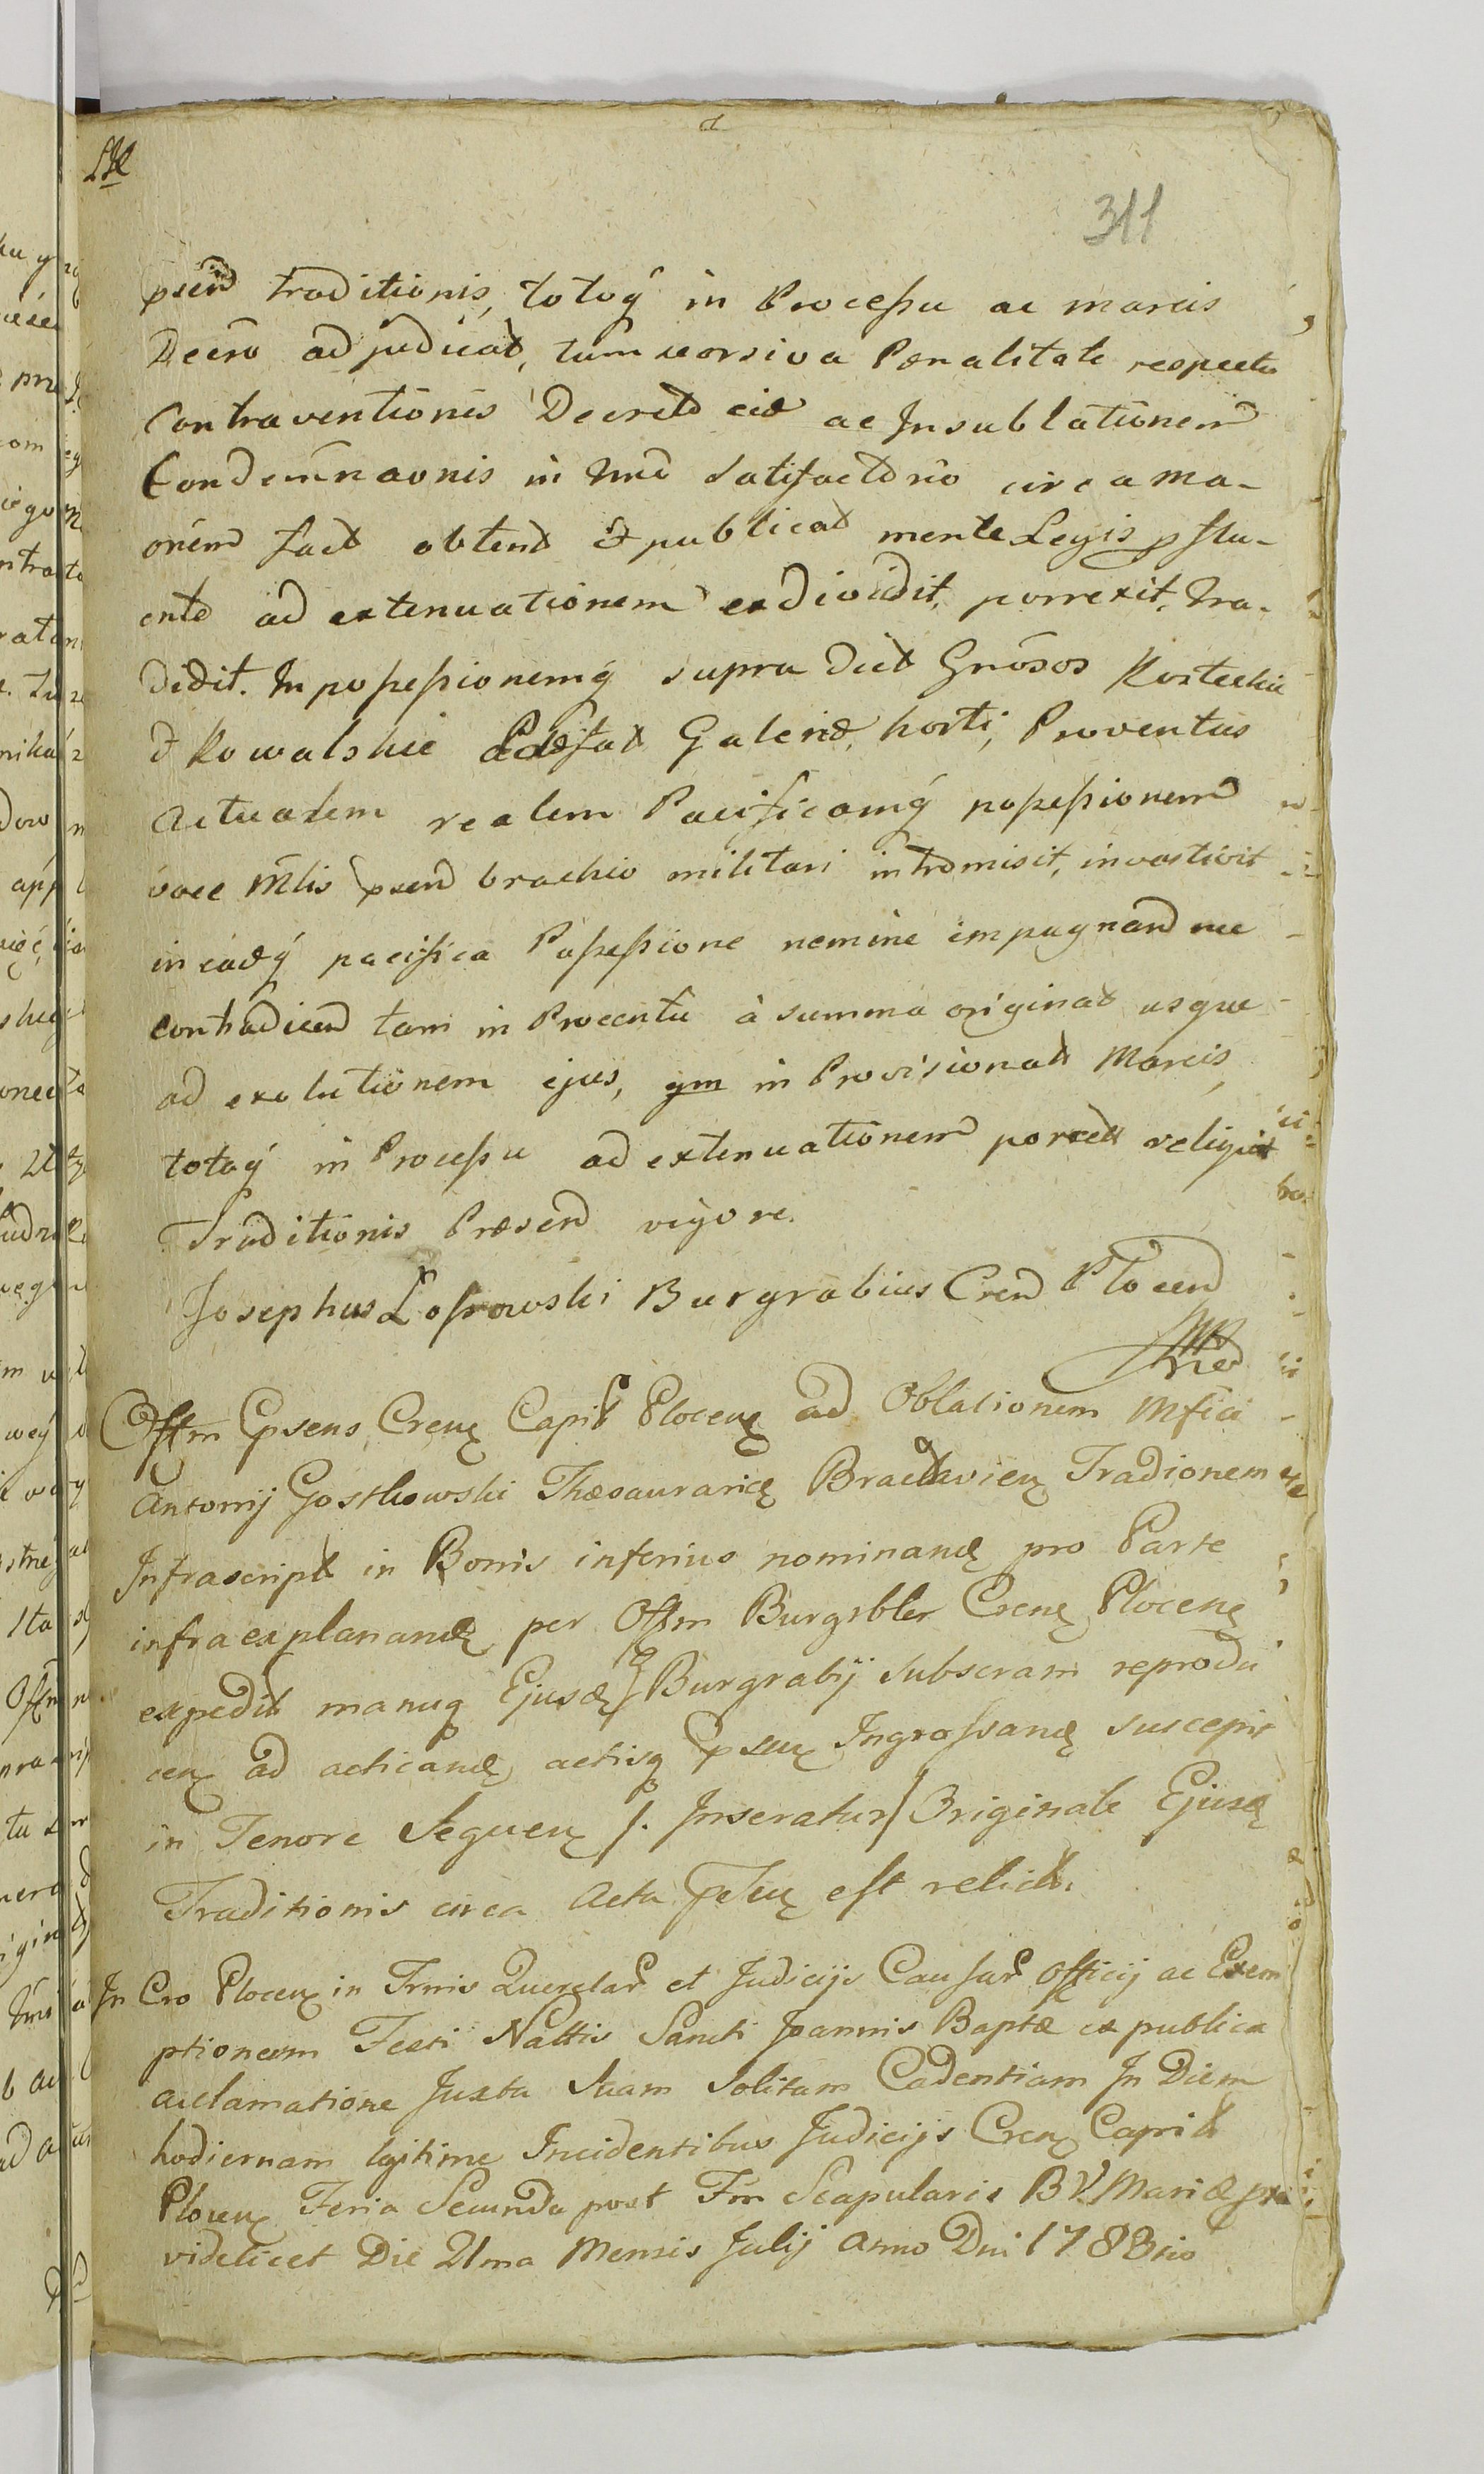 311
psend traditionis, totoq in Processu ac marcis
Decro adjudicat, tum seorsiva Pœnalitate respectu
Contraventionis Decreto eid ac Insublationem
Condemnaonis in satisfactorio circa ma-
onem fact obtent et publicat mente Legis pstu-
ente ad extenuationem exdividit, porrexit, tra-
didit. In possessionemq supra dict Gnosos Kosteckie
et Kowalskie Galerie, horti, Proventus
actualem realem Pacificamq possessionem
voce Mlis psend brachio militari intromisit, investivit
in eadq pacifica Possessione nemine impugnand nec
contradicend tam in Procentu à summa originat usque
ad exolutionem ejus, qm in Provisionat Marcis,
totoq in Processu ad extenuationem porrect reliquit
Traditionis Præsend vigore.
Josephus Lossowski Burgrabius Crend Plocend
Offm Epsens Crenę Capit Plocenę ad Oblationem Mfici
Antonij Gostkowski Thæsaurarię Bracławienę Tradionem
Infrascript in Bonis inferius nominandę pro Parte
infra explanandę per Offm Burgrble Crenę Plocenę
expedit manuq Ejusdę Burgrabij subscram reprodu
cenę ad acticandę actisq psenę Ingrossandę suscepit
in Tenore Sequenę /. Inseratur / Originale Ejusdę
Traditionis circa Acta psenę est relict.
In Cro Plocenę in Trnis Querelar et Judicijs Causar Officij ac Exem
ptionem Festi Nattis Sancti Joannis Baptæ ex publica
acclamatione Juxta Suam Solitam Cadentiam In Diem
hodiernam legitime Incidentibus Judicijs Crenę Capit
Plocenę Feria Secunda post Fm Scapularis B V. Mariæ pxa
videlicet Die 21ma Mensis Julij Anno Dni 1788vo